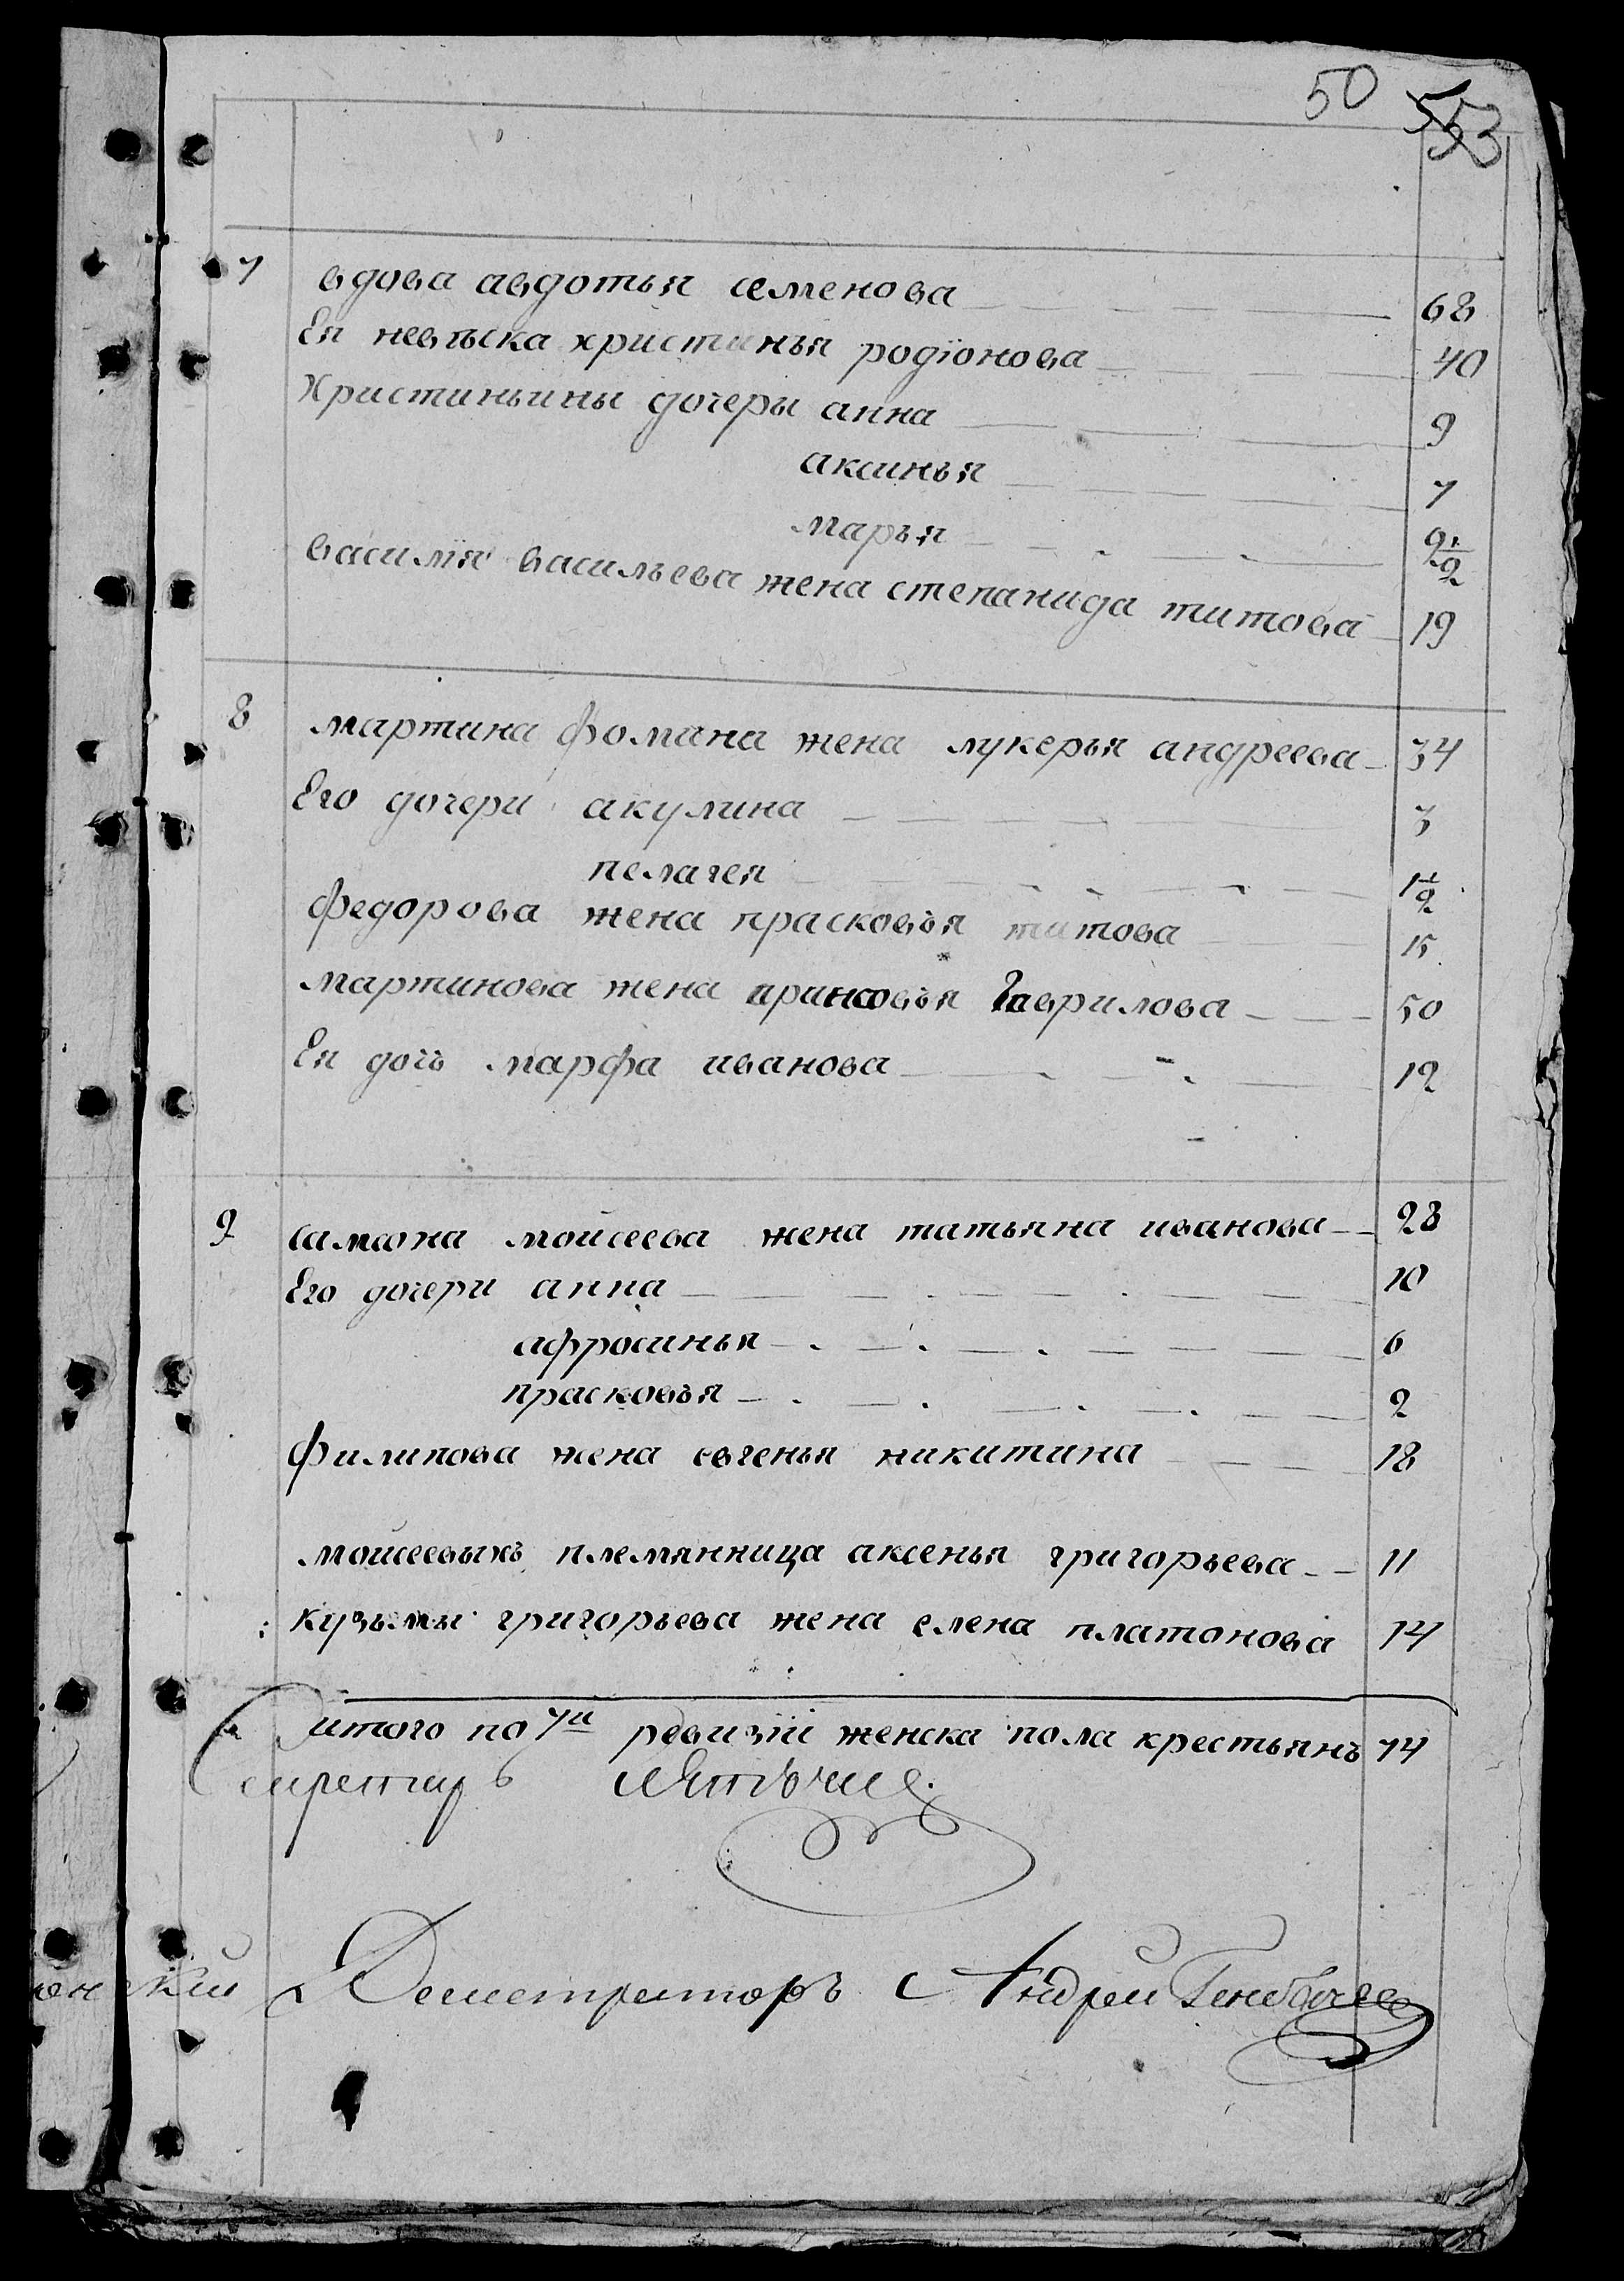 50 53
7 вдова авдотья семенова 68
Ея невѣска христинья родіонова 40
Христиньины дочеры анна 9
аксинья 7
марья 2 1/2
василія васильева жена степанида титова 19
8 мартина фомина жена лукерья андреева 34
Его дочери акулина 3
пелагея 1 1/2
федорова жена прасковья титова 15
мартинова жена прасковья Гаврилова 50
Ея дочь марфа иванова 12
9 самсона мойсеева жена татьяна иванова 28
Его дочери анна 10
афросинья 6
прасковья 2
филипова жена евгенья никитина 18
мойсеевыхъ племянница аксенья григорьева 11
кузьмы григорьева жена елена платонова 14
итого по 7й ревизіи женска пола крестьянъ 74
Секретарь
Регистраторъ Андрей